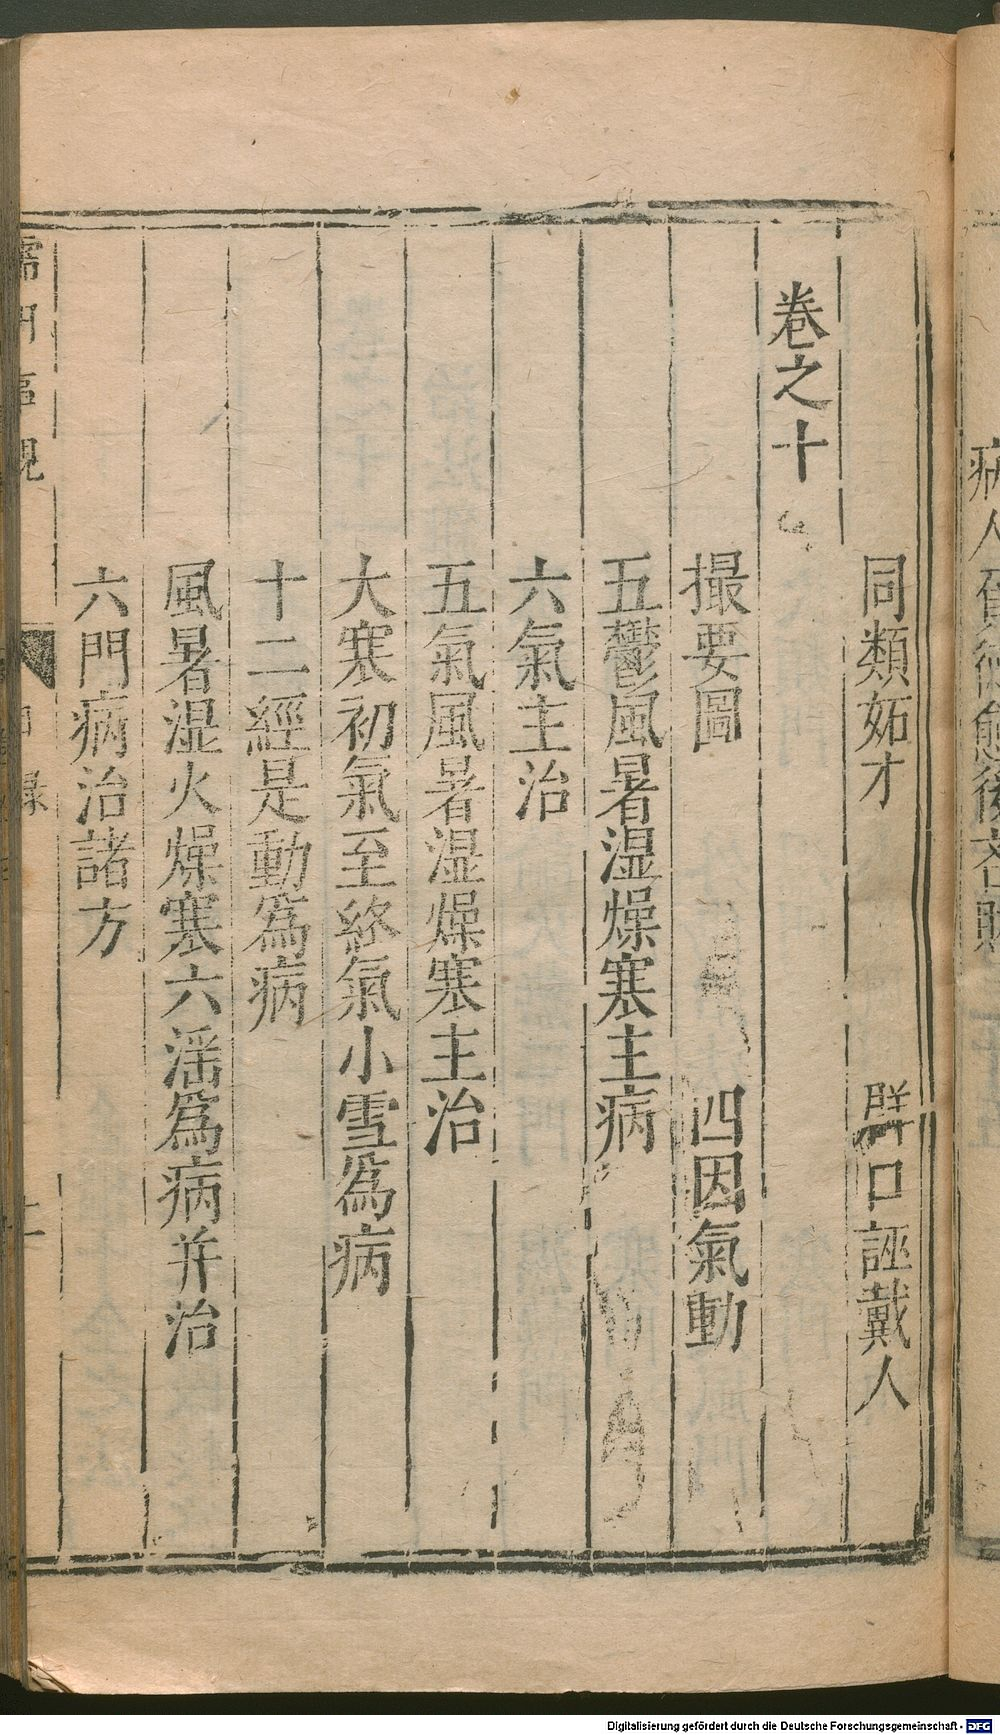 同類妬才　羣口誣戴人
卷之十
撮要圖　四因氣動
五鬱風暑湿燥寒主病
六氣主治
五氣風暑湿燥寒主治
大寒初氣至終氣小雪爲病
十二經是動爲病
風暑湿火燥寒六淫爲病并治
六門病治諸方
Digitalisierung gefördert durch die Deutsche Forschungsgemeinschaft - DFG